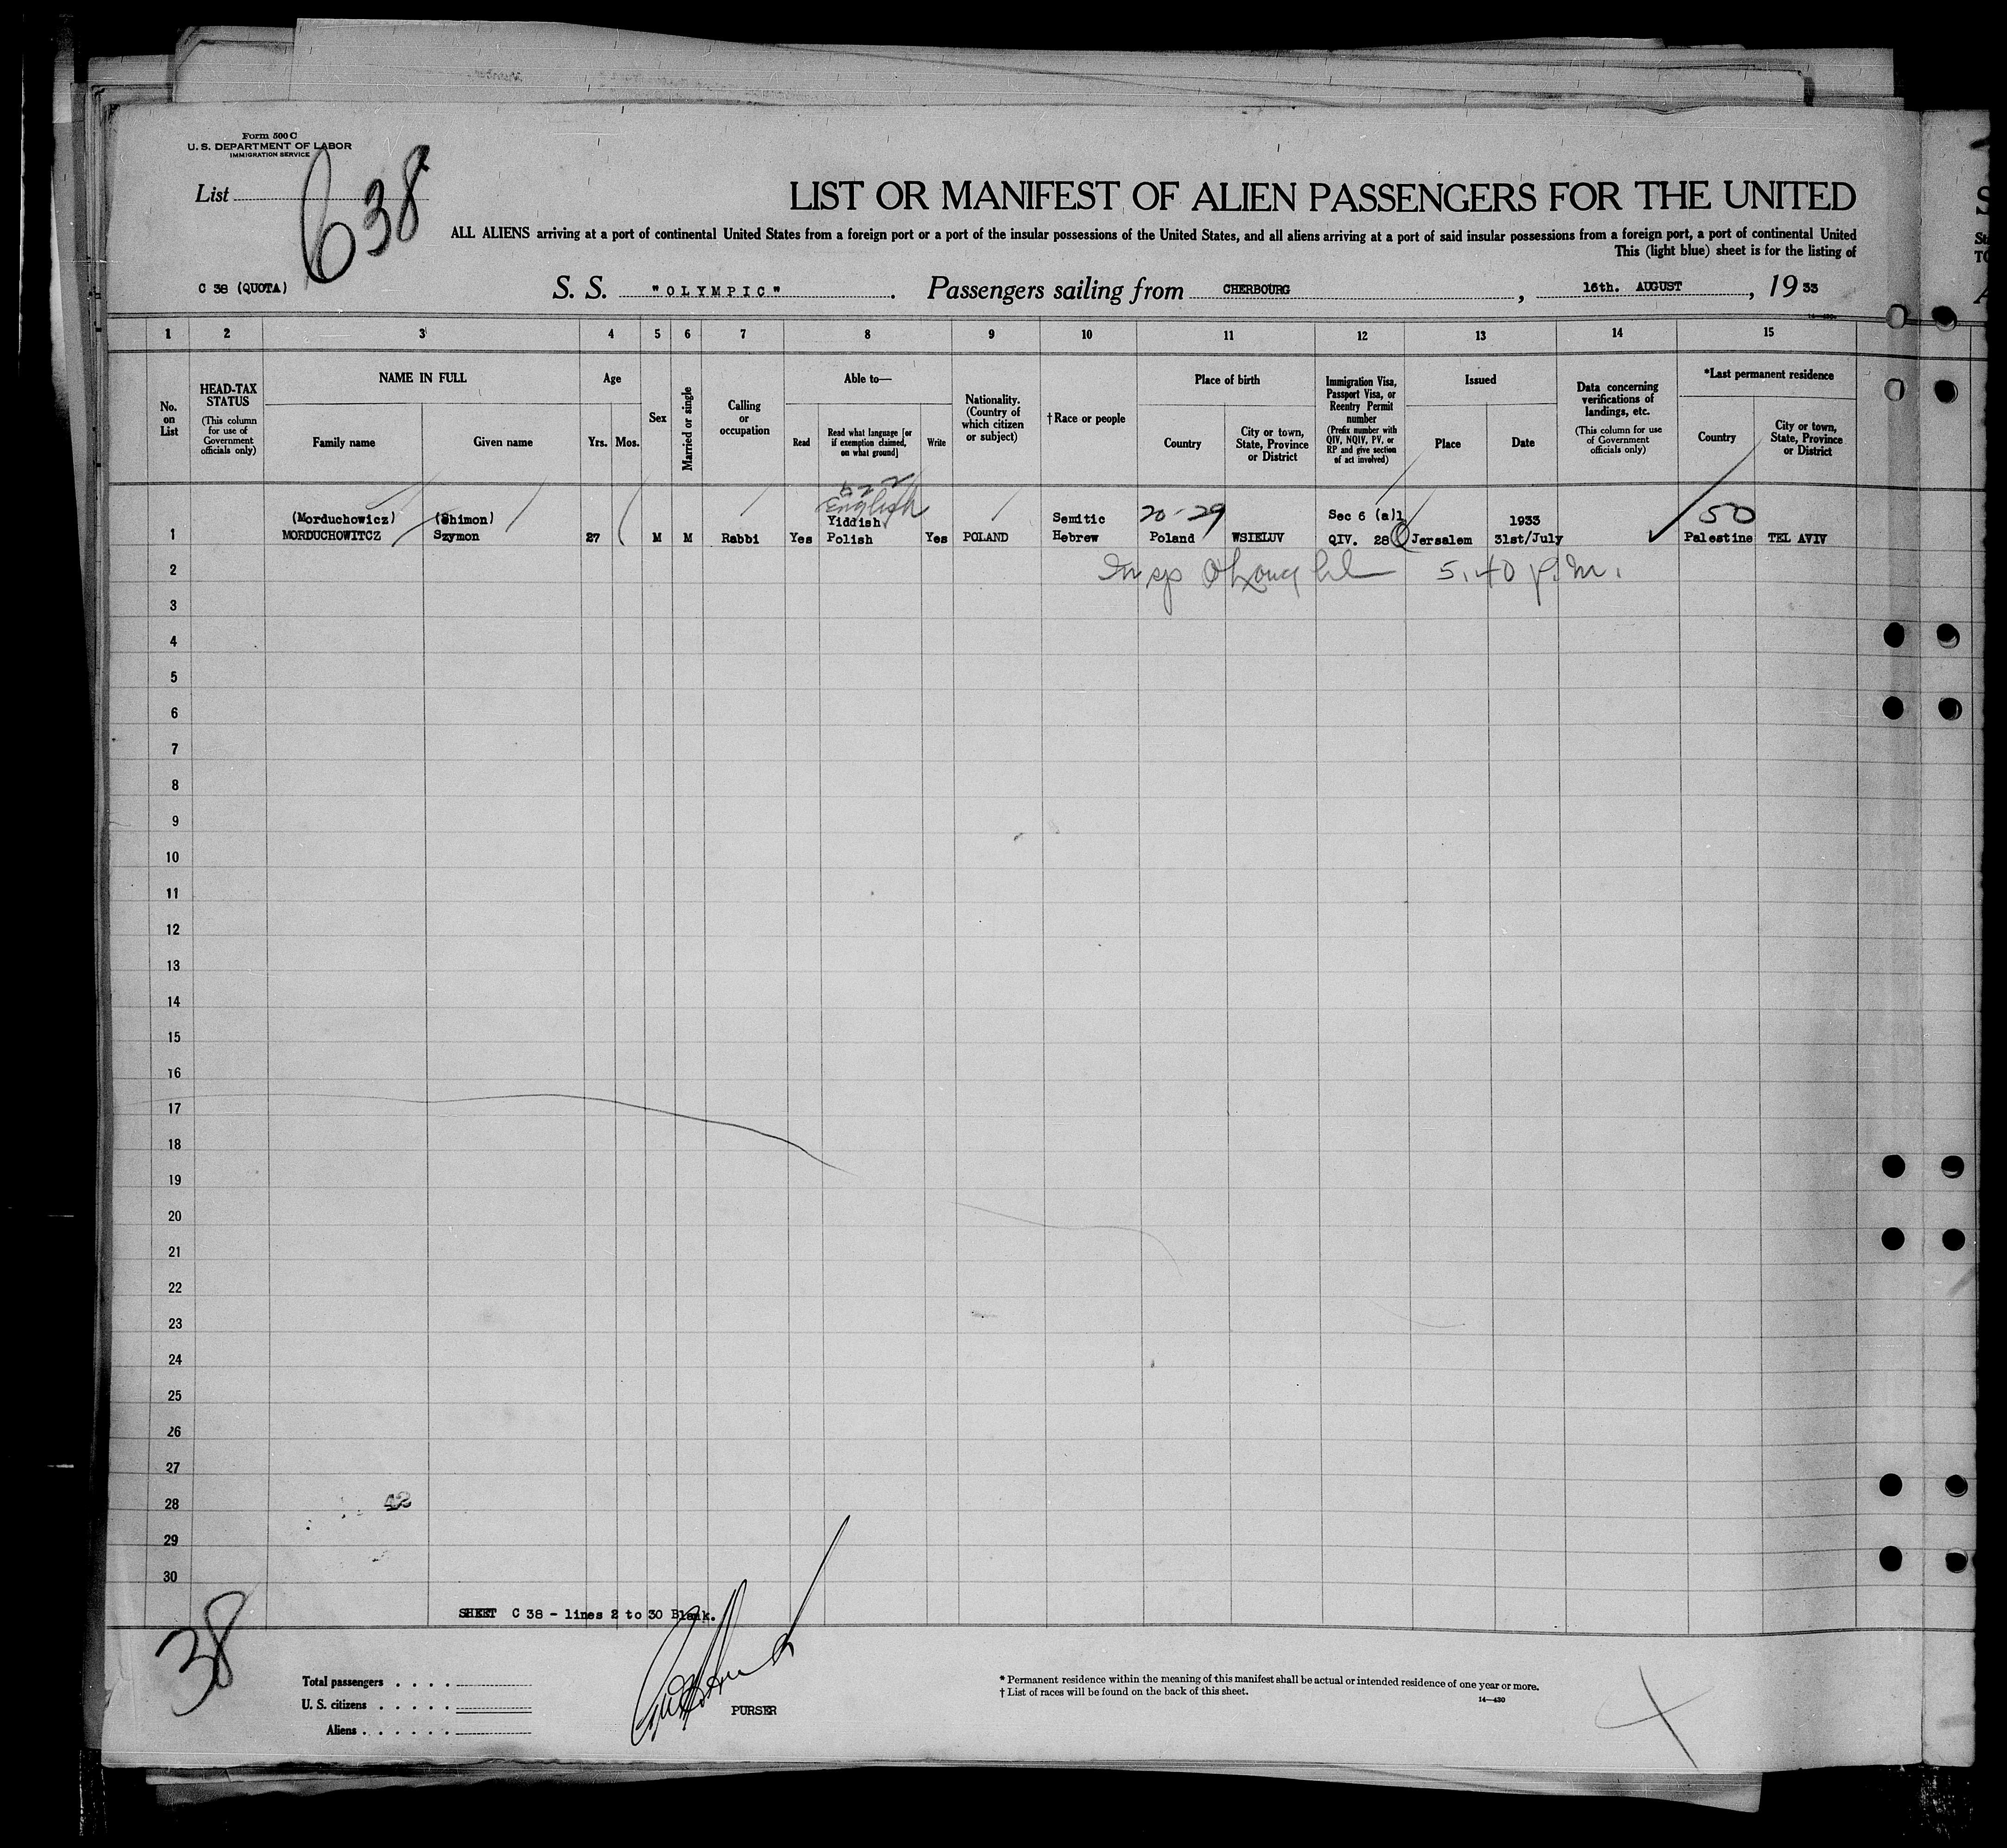 Form 500 C
U. S. DEPARTMENT OF LABOR
IMMIGRATION SERVICE
List
638
LIST OR MANIFEST OF ALIEN PASSENGERS FOR THE UNITED
ALL ALIENS arriving at a port of continental United States from a foreign port or a port of the insular possessions of the United States, and all aliens arriving at a port of said insular possessions from a foreign port, a port of continental United
This (light blue) sheet is for the listing of
C 38 (QUOTA)
S. S. "OLYMPIC". Passengers sailing from CHERBOURG, 16th. AUGUST, 1933
1 2 3 4 5 6 7 8 9 10 11 12 13 14 15
No. on List
HEAD-TAX STATUS
(This column for use of Government officials only)
NAME IN FULL
Family name
Given name
Age
Yrs. Mos.
Sex
Married or single
Calling or occupation
Able to—
Read
Read what language [or if exemption claimed, on what ground]
Write
Nationality. (Country of which citizen or subject)
† Race or people
Place of birth
Country
City or town, State, Province or District
Immigration Visa, Passport Visa, or Reentry Permit number
(Prefix number with QIV, NQIV, PV, or RP and give section of act involved)
Issued
Place
Date
Data concerning verifications of landings, etc.
(This column for use of Government officials only)
*Last permanent residence
Country
City or town, State, Province or District
English
(Morduchowicz) (Shimon) Yiddish Semitic 20-29 Sec 6 (a)1 1933 50
1 MORDUCHOWITCZ Szymon 27 M M Rabbi Yes Polish Yes POLAND Hebrew Poland WSIELUV QIV. 28 Jersalem 31st/July Palestine TEL AVIV
2 5.40 p.m.
3
4
5
6
7
8
9
10
11
12
13
14
15
16
17
18
19
20
21
22
23
24
25
26
27
28
29
30
SHEET C 38 - lines 2 to 30 Blank.
38
Total passengers . . . .
U. S. citizens . . . . .
Aliens . . . . . .
PURSER
* Permanent residence within the meaning of this manifest shall be actual or intended residence of one year or more.
† List of races will be found on the back of this sheet.
14—430